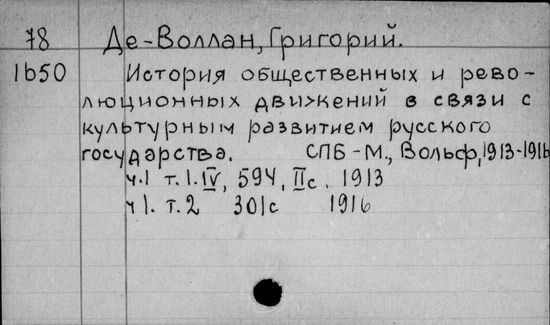 78 Де-Воллан, Григорий.
1650 История общественных и рево-
люционных движений в связи с
культурным развитием русского
государства. СПБ-М., Вольф, 1913-1916
ч.1 т.1. IV, 594, II с. 1913
ч 1. т.2 301с 1916